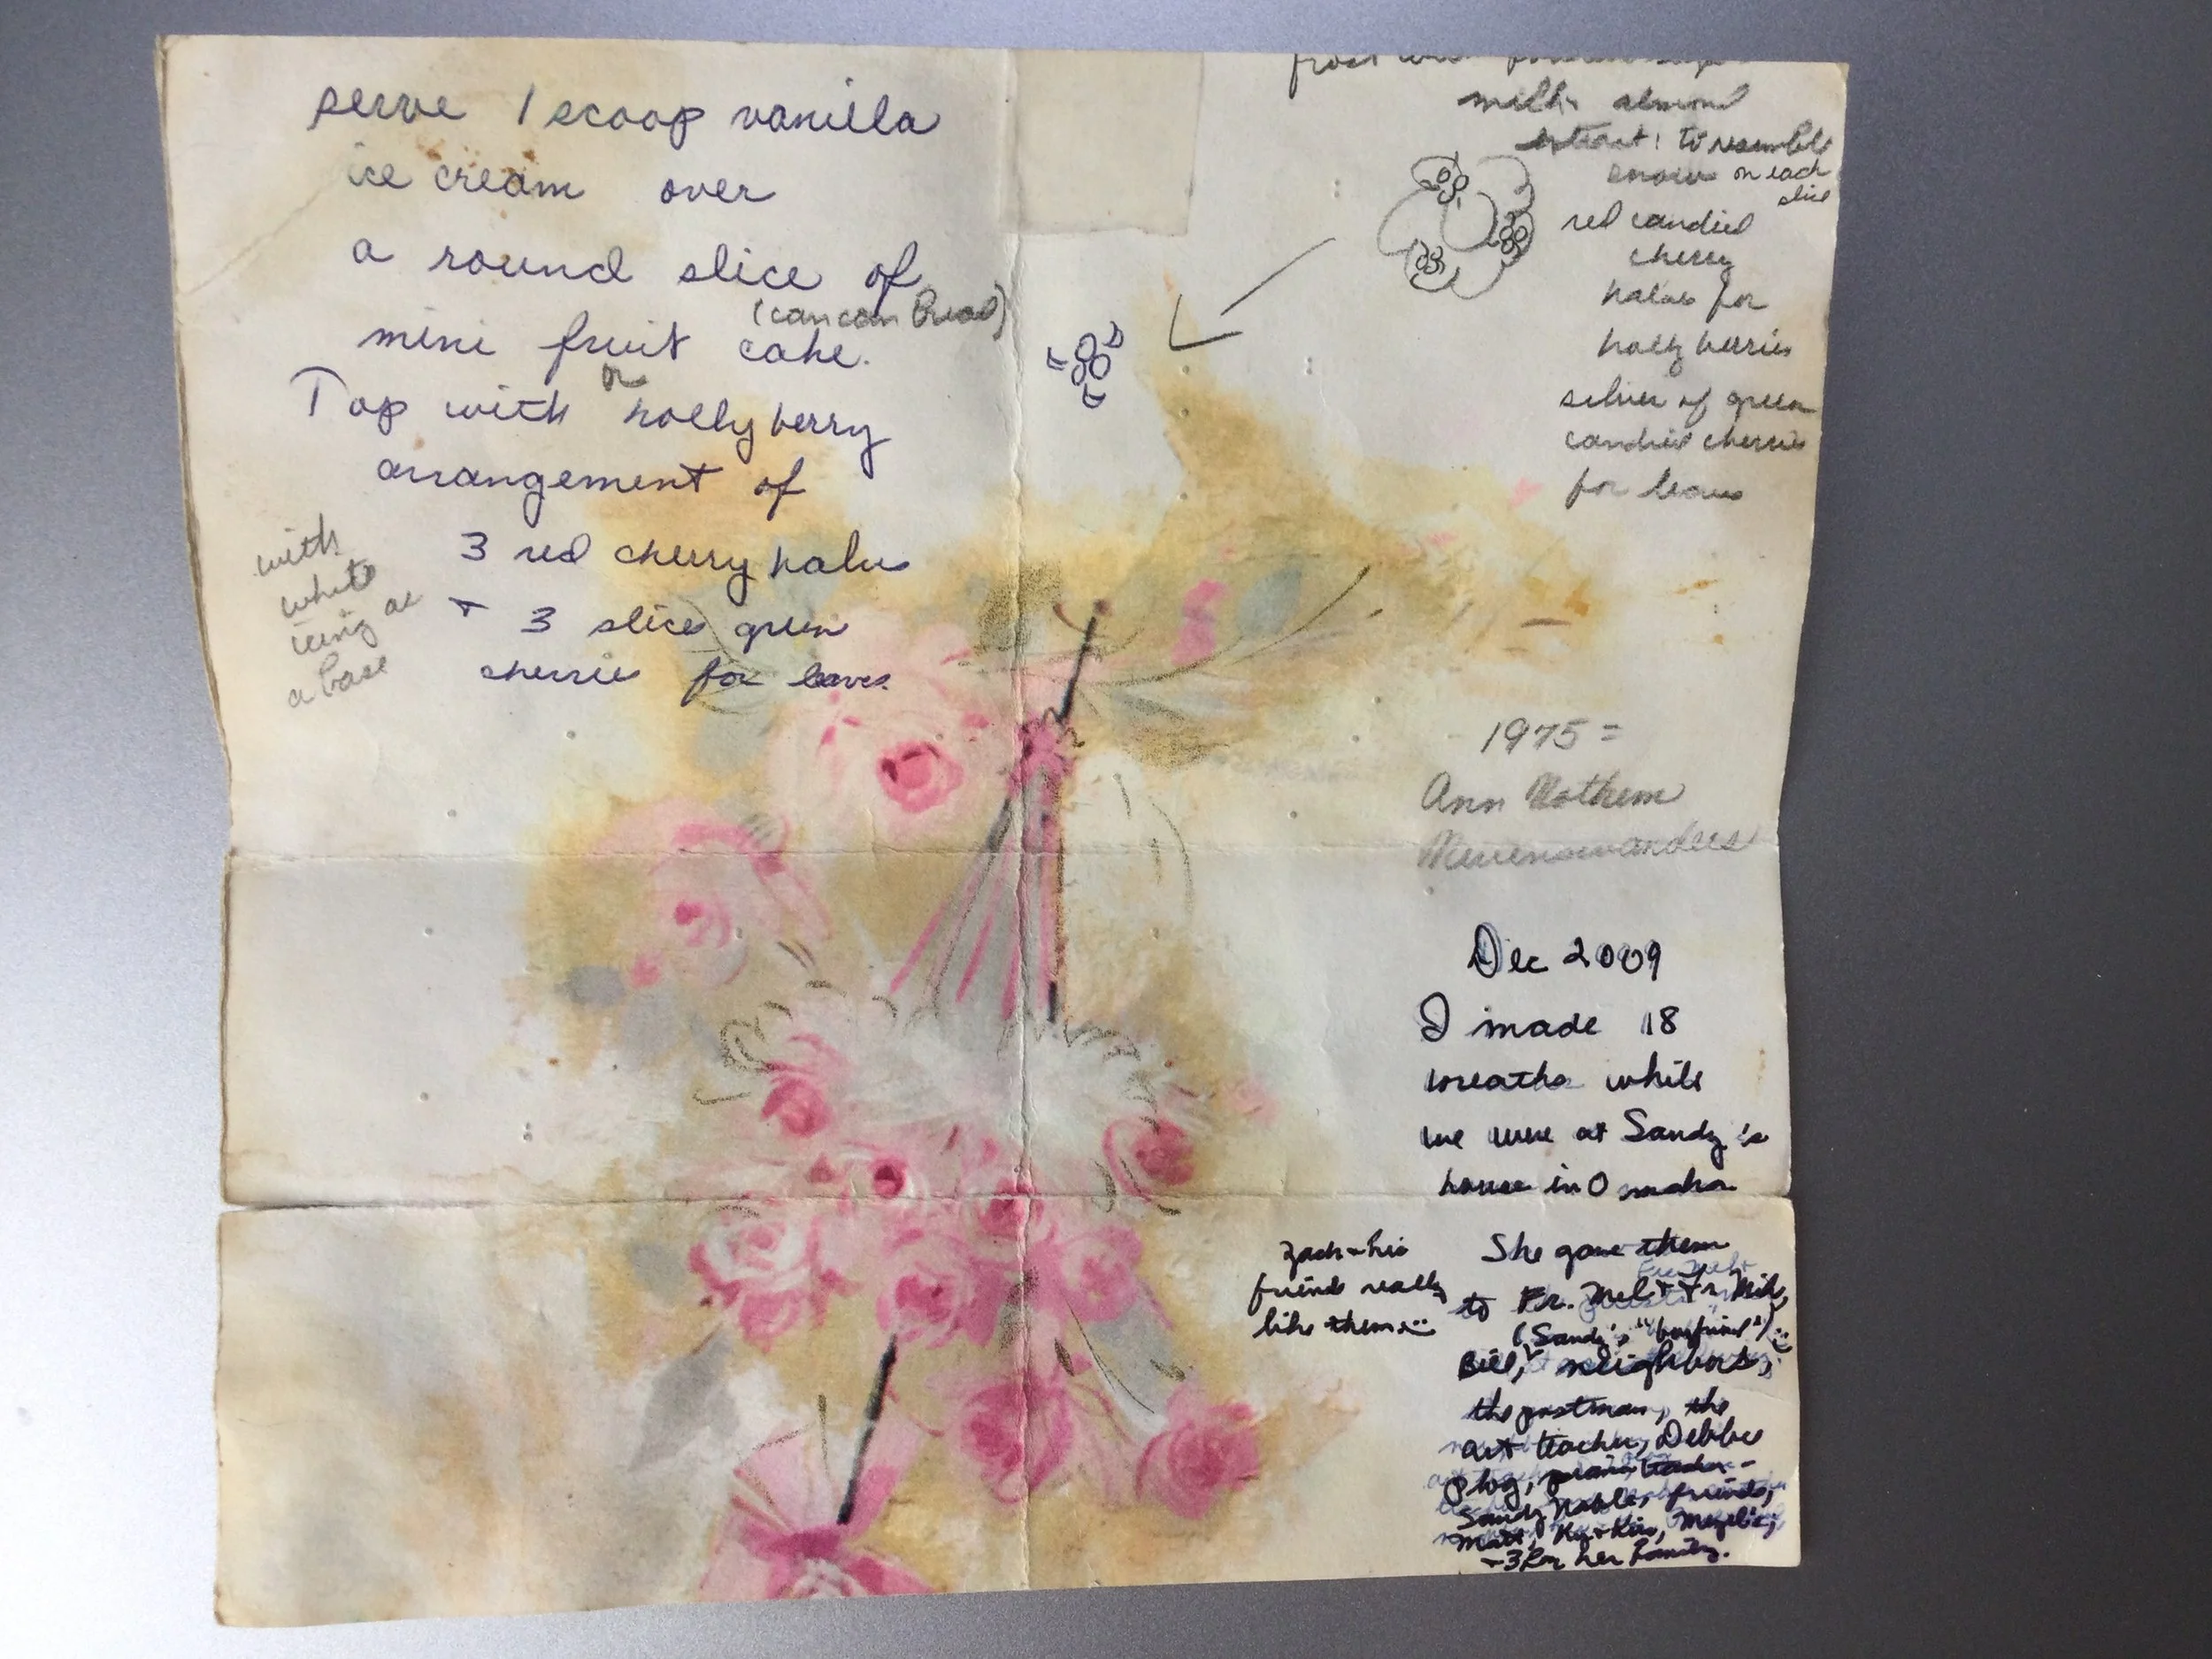 serve 1 scoop vanilla
ice cream over
a round slice of
(can can Bread)
mini fruit cake.
or
Top with holly berry
arrangement of
3 red cherry halves
+ 3 slices green
cherries for leaves.
with
white
icing as
a base
frost with
milk almond
extract! to resemble
snow on each
slice
red candied
cherry
halves for
holly berries
sliver of green
candied cherries
for leaves
1975 =
Ann
Dec 2009
I made 18
wreaths while
we were at Sandy's
house in Omaha
She gave them
to Fr. Mel + Fr. Mik,
(Sandy's "boyfriend")
Bill, neighbors,
the postman, the
art teacher, Debbie
Plog, piano teacher -
Sandy Noble, friends,
Matt,
+ 3 for her family.
Zach + his
friend really
like them